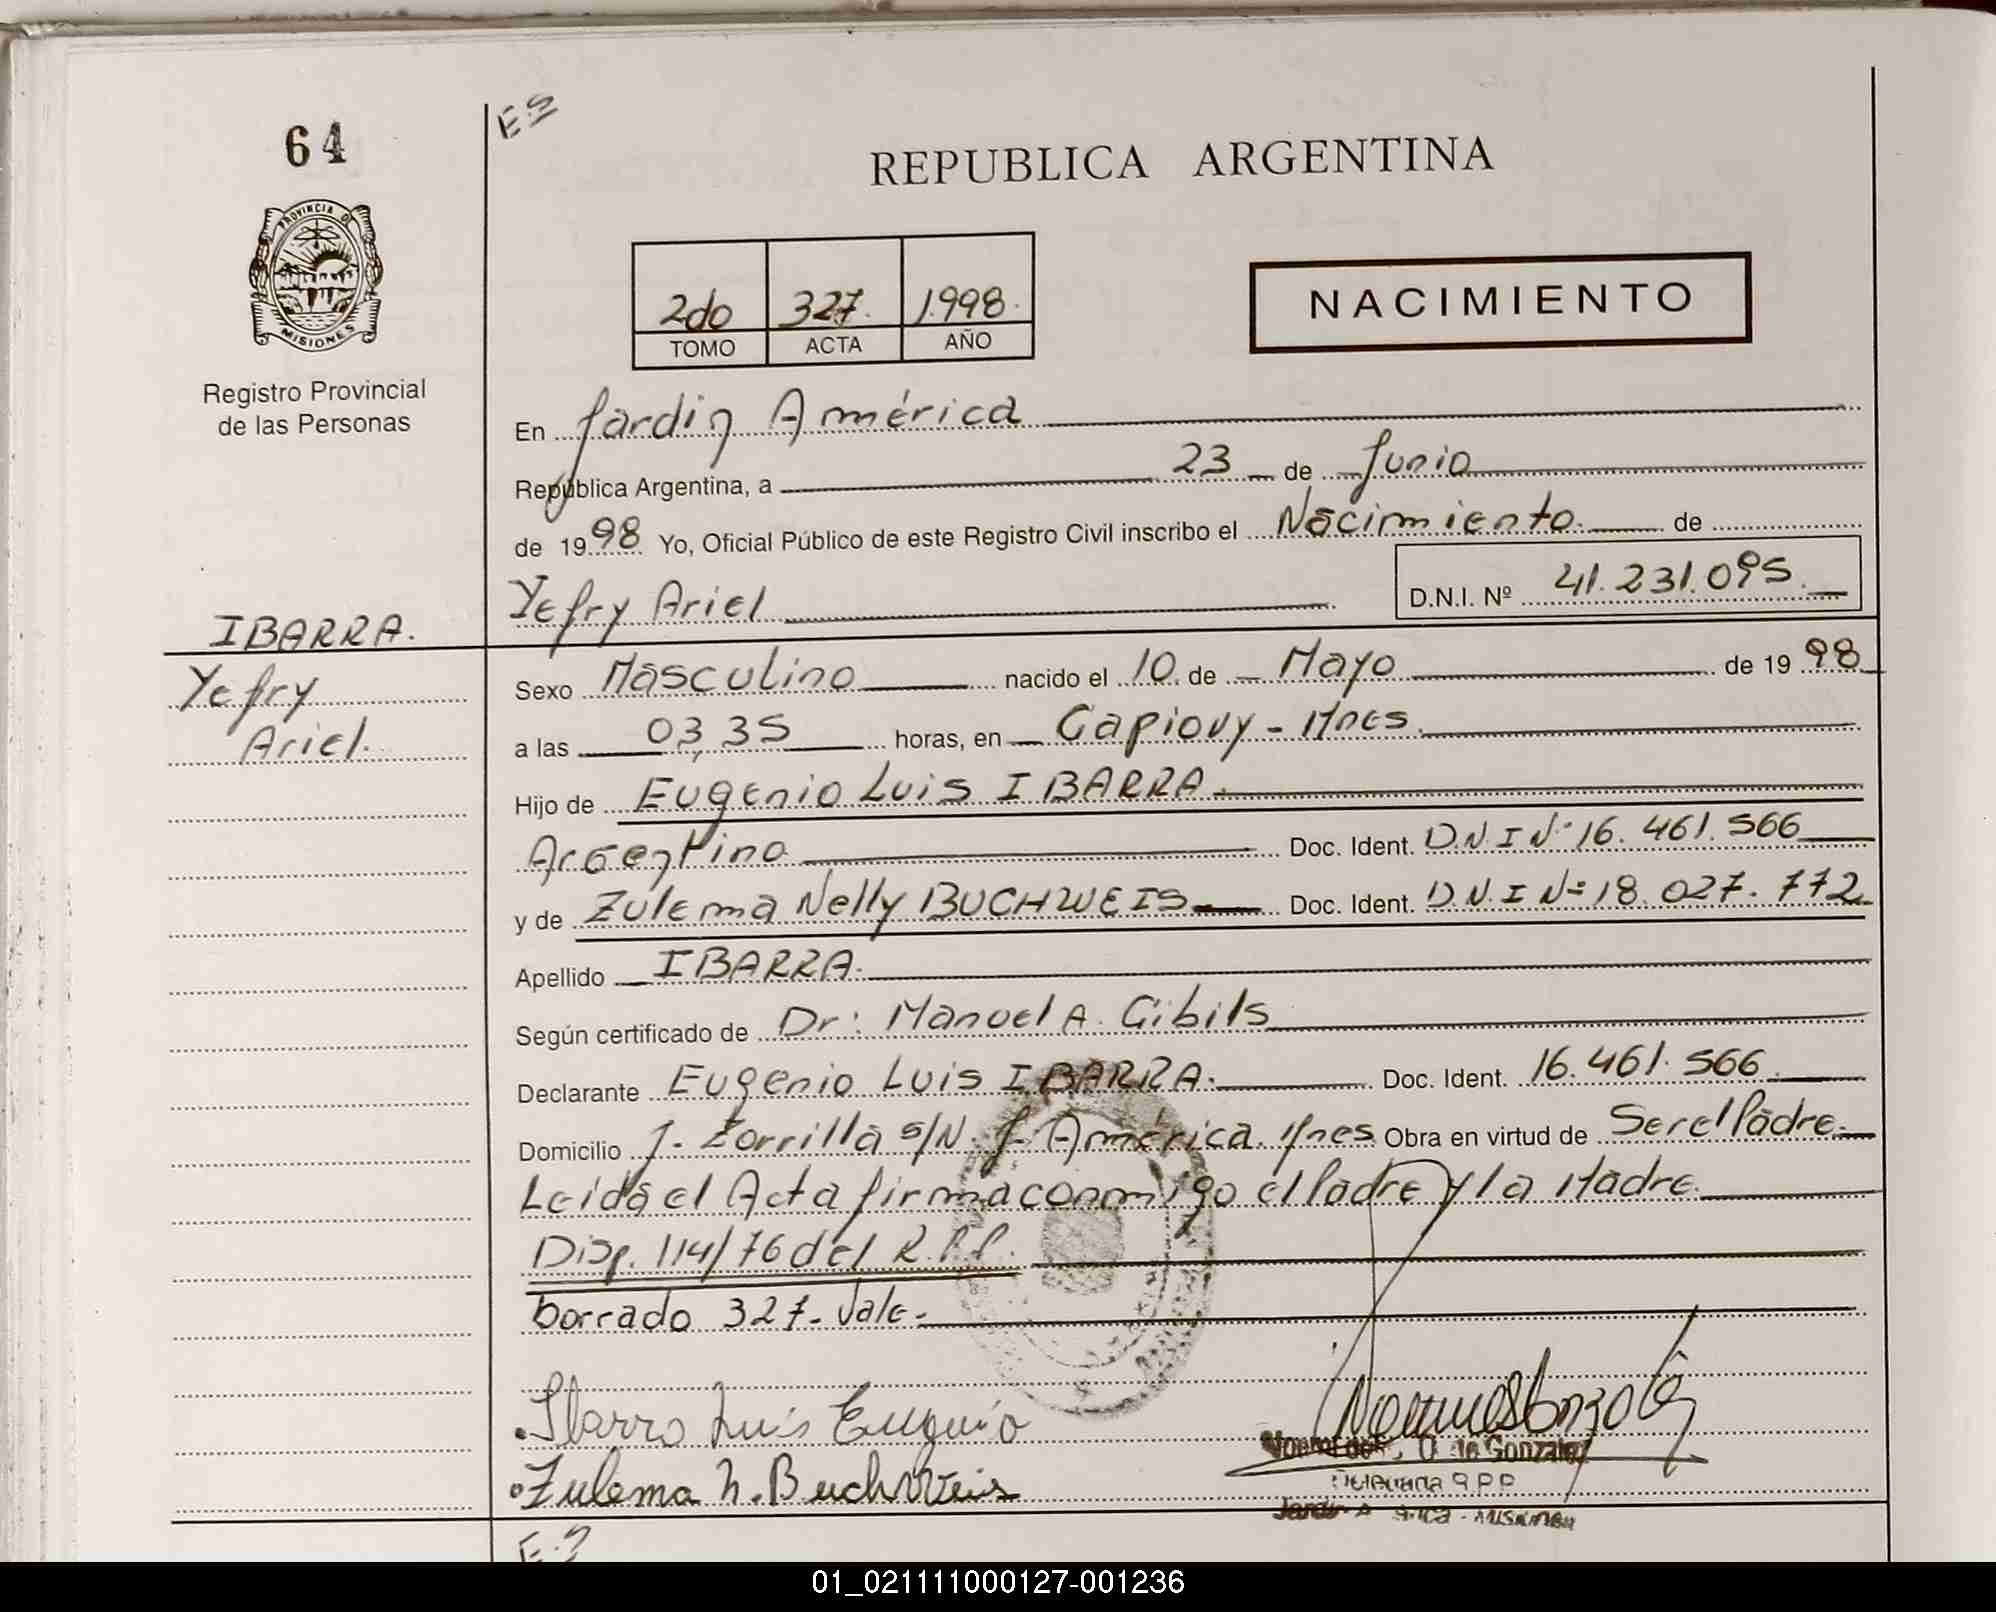 64
E.S
REPUBLICA ARGENTINA
PROVINCIA DE
MISIONES
2do 327. 1.998.
TOMO ACTA AÑO
NACIMIENTO
Registro Provincial
de las Personas
En Jardin América
República Argentina, a 23 de Junio
de 1998 Yo, Oficial Público de este Registro Civil inscribo el Nacimiento de
Yefry Ariel D.N.I. Nº 41.231.095.
IBARRA.
Yefry
Ariel.
Sexo Masculino nacido el 10 de Mayo de 1998
a las 03,35 horas, en Capiovy - Mnes.
Hijo de Eugenio Luis IBARRA.
Argentino Doc. Ident. D.N.I Nº 16.461.566
y de Zulema Nelly BUCHWEIS Doc. Ident. D.N.I Nº 18.027.772
Apellido IBARRA.
Según certificado de Dr: Manuel A. Gibils
Declarante Eugenio Luis IBARRA. Doc. Ident. 16.461.566
Domicilio J. Zorrilla s/N. J. América. Mnes Obra en virtud de Ser el Padre.
Leida el Acta firma conmigo el Padre y la Madre.
Disp. 114/76 del R.P.P.
borrado 327. Vale.
Ibarra Luis Eugenio
Zulema N. Buchweis
de Gonzalez
R P P
Misiones
E.S
01_021111000127-001236